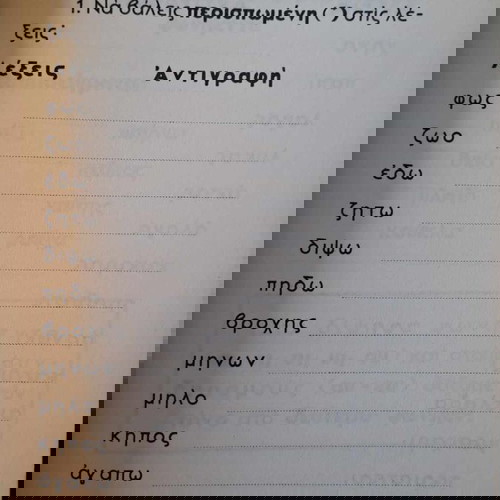 1. Νὰ βάλεις περισπωμένη (῀) στὶς λέ-
ξεις:
Λέξεις Ἀντιγραφὴ
φως
ζωο
ἐδω
ζητω
διψω
πηδω
βροχης
μηνων
μηλο
κηπος
ἀγαπω